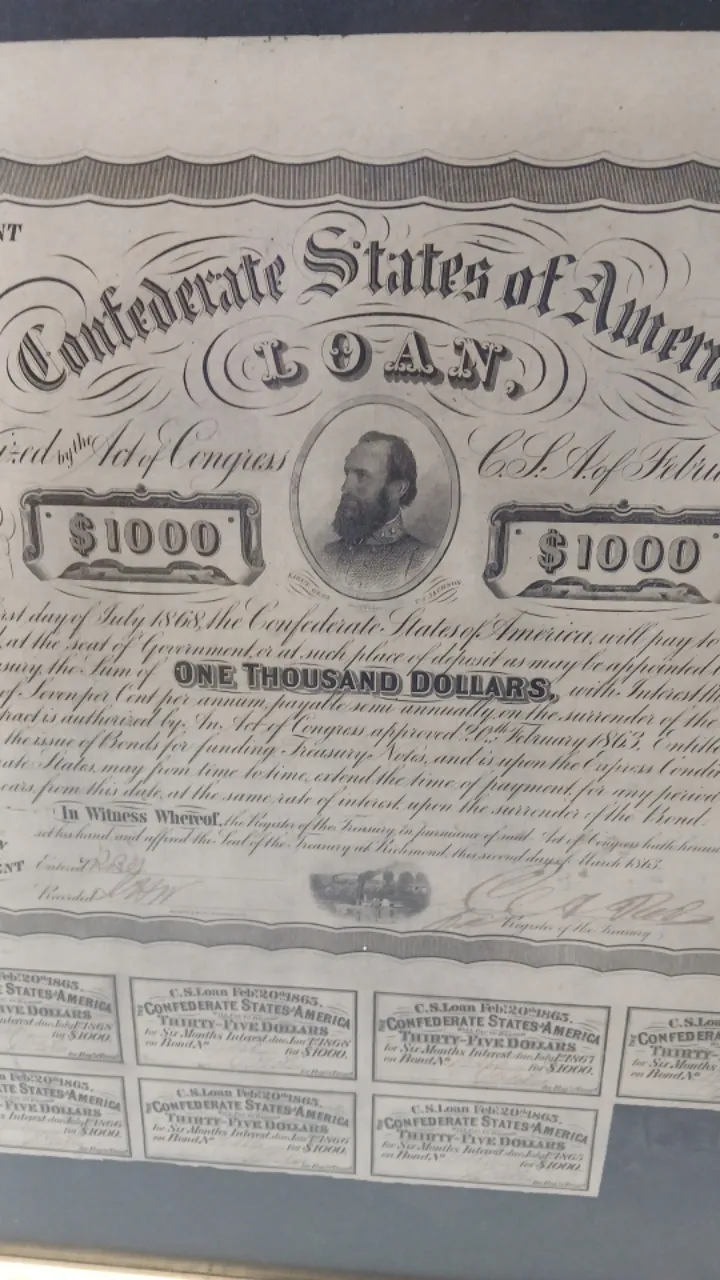 NT
Confederate States of Ameri
LOAN,
ized by the Act of Congress C.S.A. of Febru
$1000 $1000
LIEUT. GENL T.J. JACKSON
rst day of July 1868, the Confederate States of America, will pay to
, at the seat of Government, or at such place of deposit as may be appointed
sury, the Sum of ONE THOUSAND DOLLARS, with Interest th
of Seven per Cent per annum, payable semi annually, on the surrender of the
tract is authorized by An Act of Congress approved 20th February 1863, Entitl
the issue of Bonds for funding Treasury Notes, and is upon the Express Condi
rate States, may from time to time, extend the time of payment, for any period
ears, from this date, at the same rate of interest, upon the surrender of the Bond.
In Witness Whereof, the Register of the Treasury, in pursuance of said Act of Congress hath hereun
set his hand, and affixed the Seal of the Treasury at Richmond, this second day of March 1863.
ENT Entered
Recorded
Register of the Treasury
Feb: 20th 1863. C.S. Loan Feb: 20th 1863. C.S. Loan Feb: 20th 1863. C.S. Loa
E STATES OF AMERICA THE CONFEDERATE STATES OF AMERICA THE CONFEDERATE STATES OF AMERICA CONFEDE
IVE DOLLARS THIRTY-FIVE DOLLARS THIRTY-FIVE DOLLARS THIRTY-
nterest due July 1st 1868 for Six Months Interest due Jany 1st 1868 for Six Months Interest due July 1st 1867 for Six Mon
for $1000. on Bond No for $1000. on Bond No for $1000. on Bond No
Feb: 20th 1863. C.S. Loan Feb: 20th 1863. C.S. Loan Feb: 20th 1863.
TE STATES OF AMERICA THE CONFEDERATE STATES OF AMERICA THE CONFEDERATE STATES OF AMERICA
-FIVE DOLLARS THIRTY-FIVE DOLLARS THIRTY-FIVE DOLLARS
Interest due July 1st 1866 for Six Months Interest due Jany 1st 1866 for Six Months Interest due July 1st 1865
for $1000. on Bond No for $1000. on Bond No for $1000.